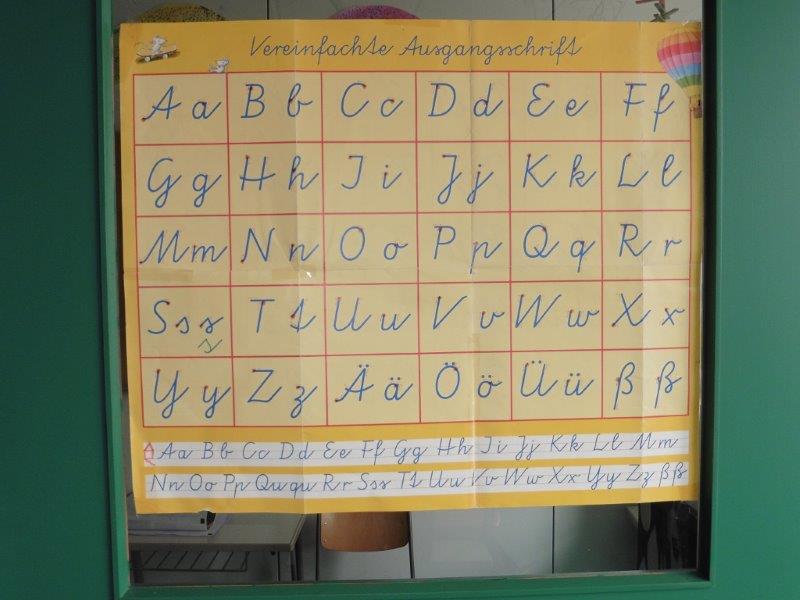 Vereinfachte Ausgangsschrift
A a B b C c D d E e F f
G g H h I i J j K k L l
M m N n O o P p Q q R r
S s s T t U u V v W w X x
s
Y y Z z Ä ä Ö ö Ü ü ß ß
A a B b C c D d E e F f G g H h I i J j K k L l M m
N n O o P p Qu qu R r S s s T t U u V v W w X x Y y Z z ß ß